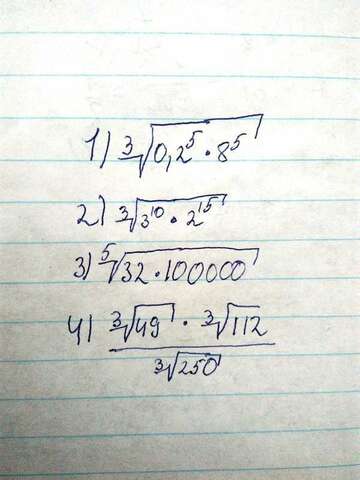 1) ∛(0,2⁵ · 8⁵)
2) ∛(3¹⁰ · 2¹⁵)
3) ⁵√(32 · 100000)
4) (∛49 · ∛112) / ∛250